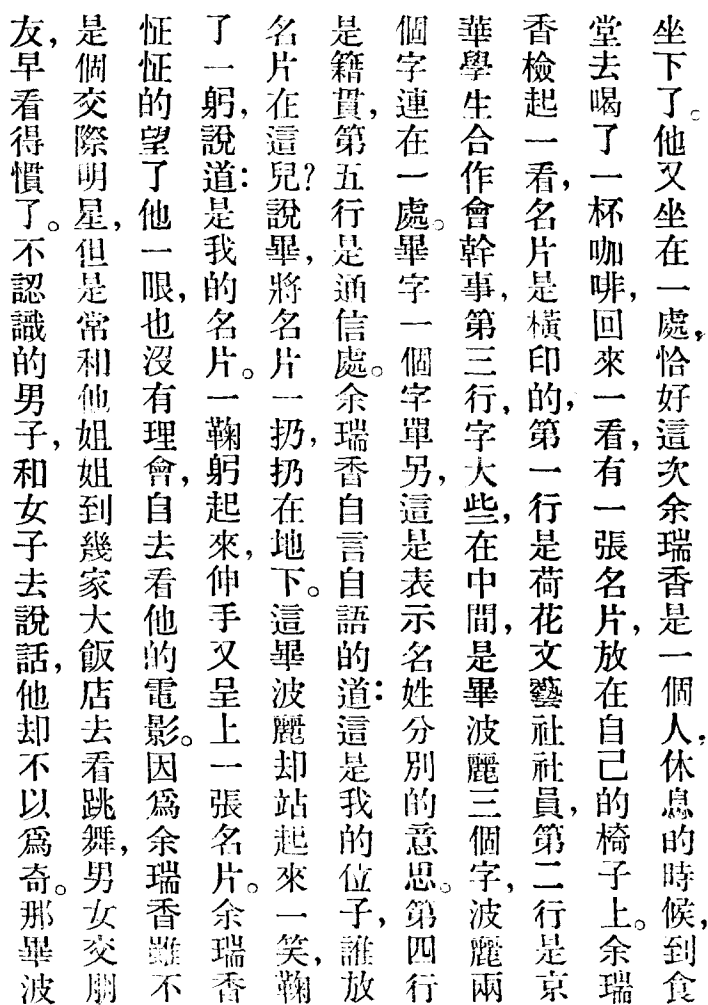 坐下了。他又坐在一處，恰好這次余瑞香是一個人，休息的時候，到食
堂去喝了一杯咖啡，回來一看，有一張名片，放在自己的椅子上。余瑞
香檢起一看，名片是橫印的，第一行是荷花文藝社社員，第二行是京
華學生合作會幹事，第三行，字大些，在中間，是畢波麗三個字，波麗兩
個字連在一處。畢字一個字單另，這是表示名姓分別的意思。第四行
是籍貫，第五行是通信處。余瑞香自言自語的道：這是我的位子，誰放
名片在這兒？說畢，將名片一扔，扔在地下。這畢波麗却站起來一笑，鞠
了一躬，說道：是我的名片。一鞠躬起來，伸手又呈上一張名片。余瑞香
怔怔的望了他一眼，也沒有理會，自去看他的電影。因爲余瑞香雖不
是個交際明星，但是常和他姐姐到幾家大飯店去看跳舞，男女交朋
友，早看得慣了。不認識的男子，和女子去說話，他却不以爲奇。那畢波